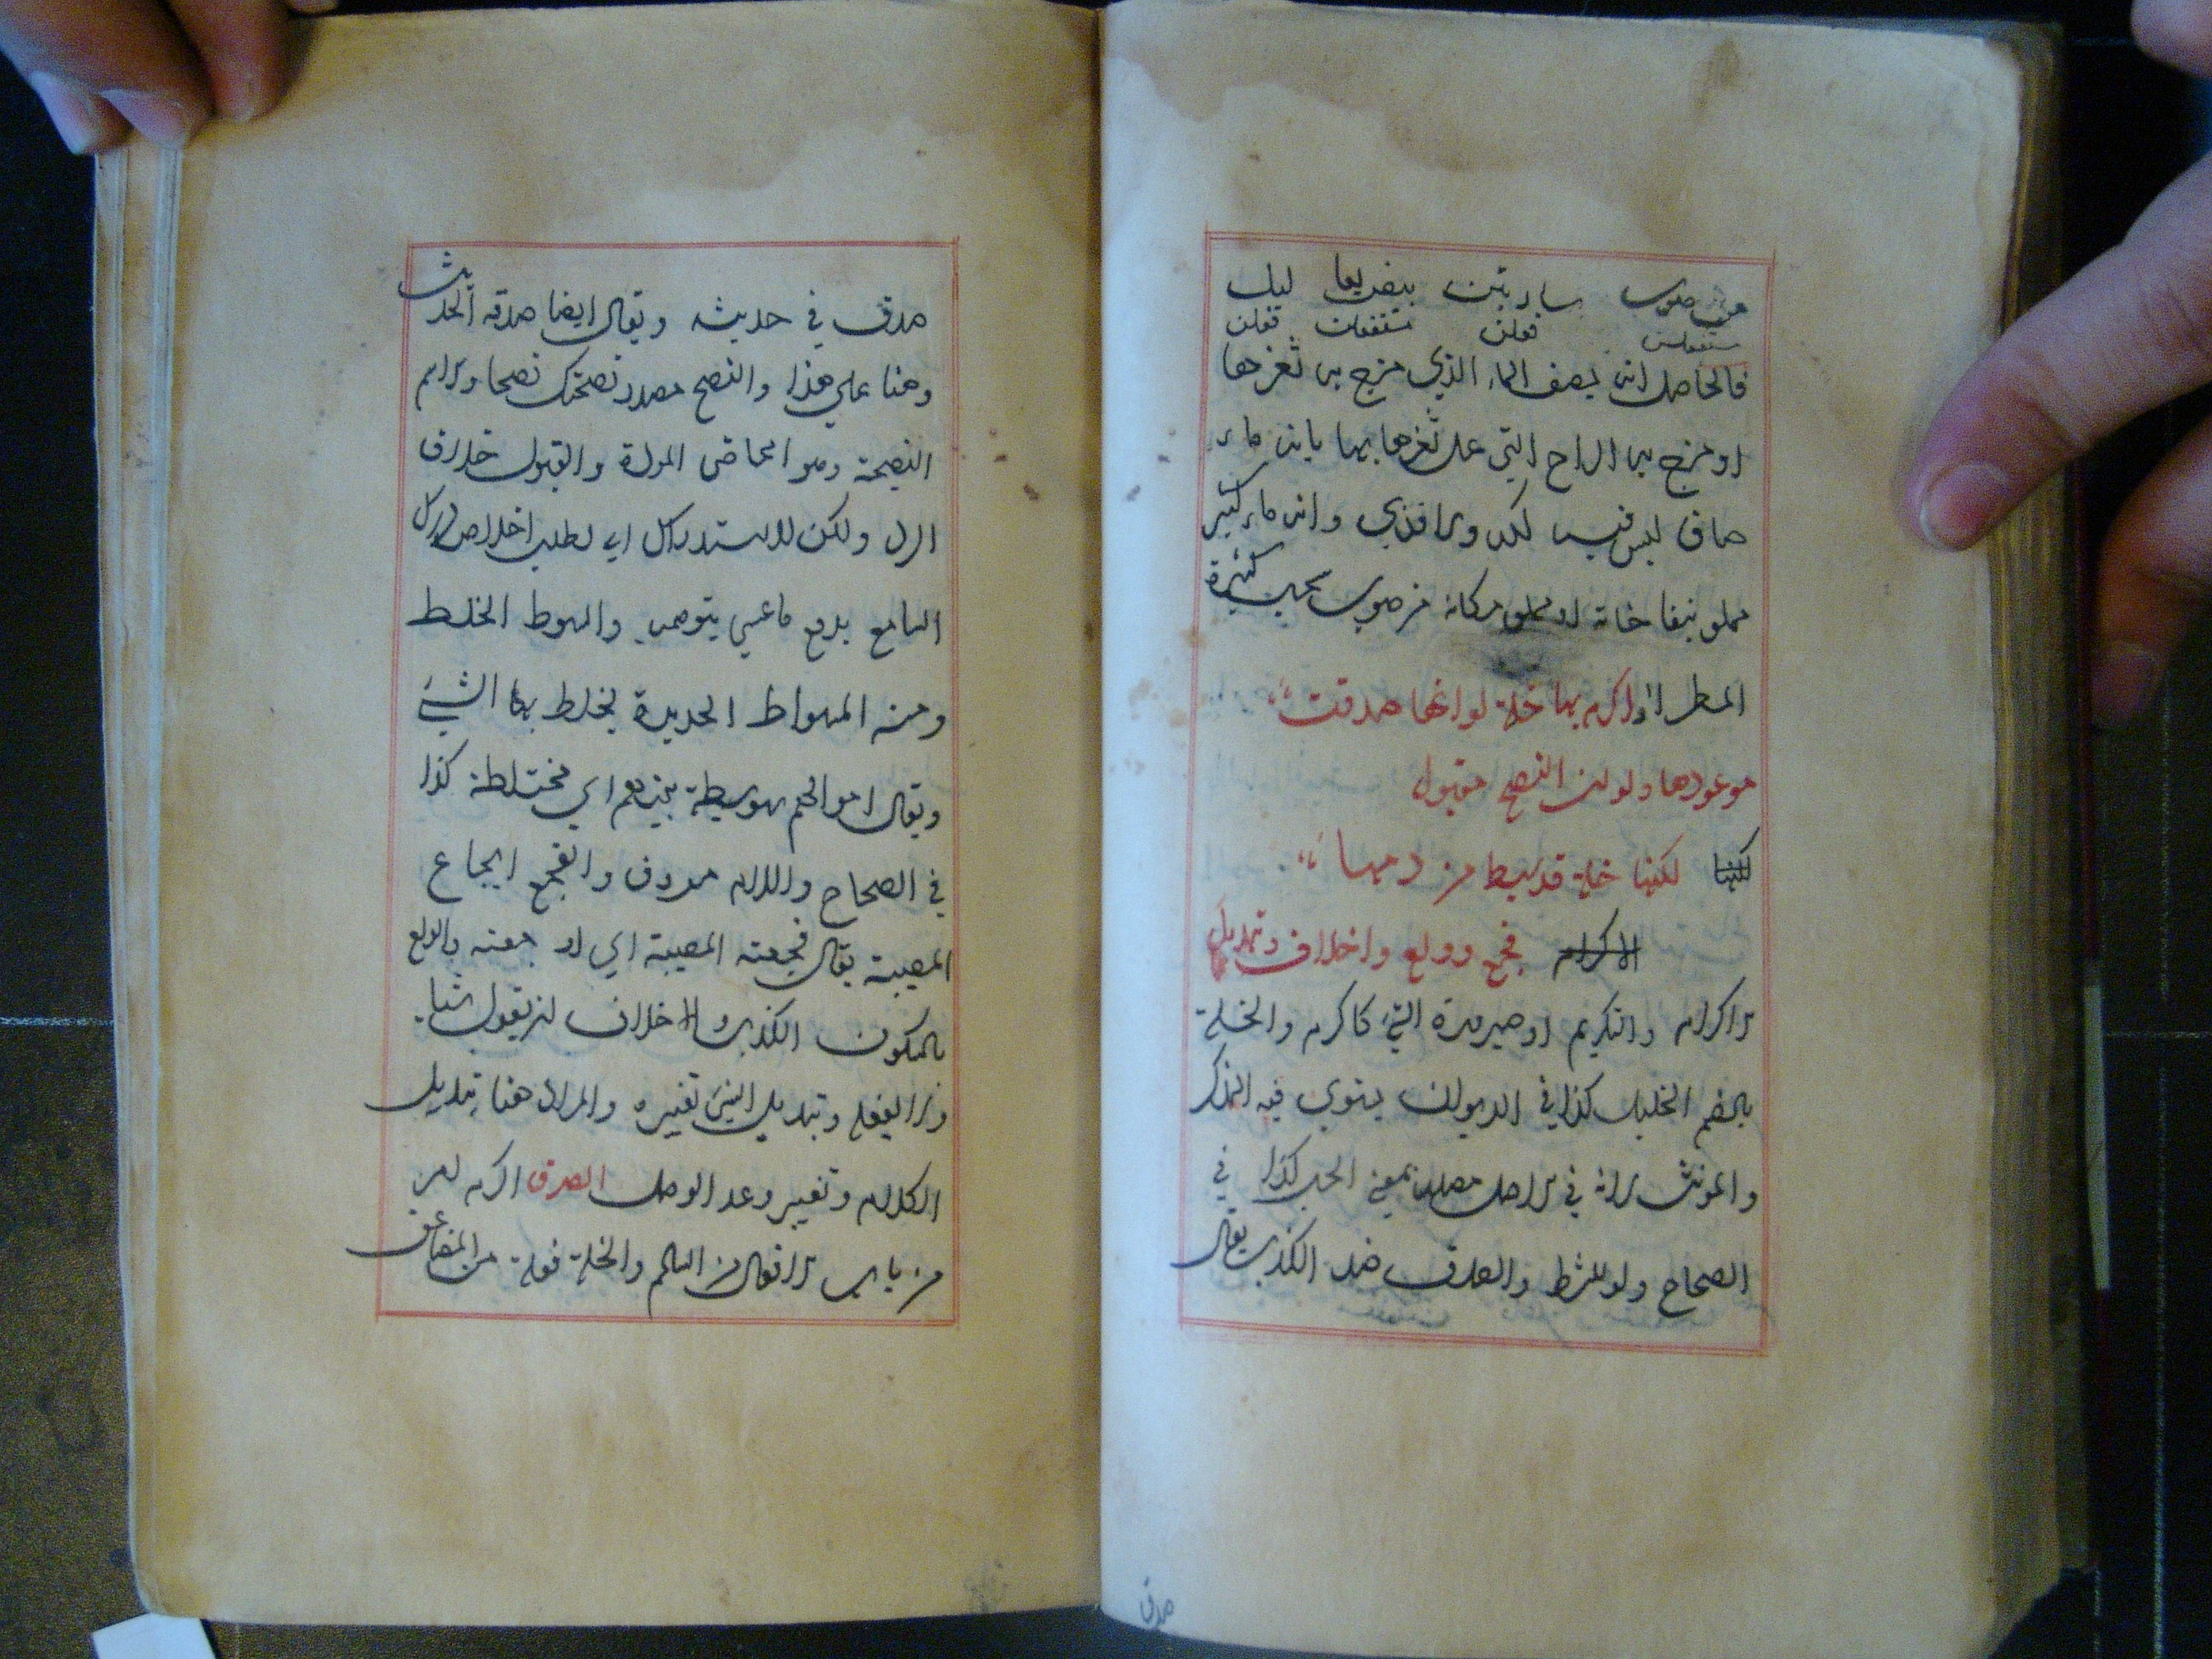 من صوب ساريتن بيضن يعا ليل
مستفعلن فعلن مستفعلن فعلن
فالحاصل انه يصف الماء الذي مزج به ثغرها
او مزج به الراح التي عل ثغرها بها بانه ماء
صاف ليس فيه لكدورا قذي وانه ماء كثير
مملو بنقاخانه او مملو مكانه من صوب سحب كثيرة
المطر اكرم بها خلة لو انها صدقت
موعودها ولو ان النصح مقبول
لكنها لكنها خلة قد سيط من دمها
الاكرام فجع وولع واخلاف وتبديل
الاكرام والتكريم او صيرورة الشئ كاكرم والخلة
بالضم الخليل كذا في الديوان يستوي فيه المذكر
والمونث لانه في الاصل مصدر بمعني الحب كذا في
الصحاح ولو للشرط والصدق ضد الكذب يقال
صدق
صدق في حديثه ويقال ايضا صدقه الحديث
وهنا علي هذا والنصح مصدر نصحتك نصحا والاسم
النصيحة وهو المحاض المودة والقبول خلاف
الرد ولكن للاستدراك اي لطلب ادراك
السامع بدفع ما عسي يتوهم والسوط الخلط
ومنه المسواط الحديدة يخلط بها الشئ
ويقال اموالهم سويطة بينهم اي مختلطة كذا
في الصحاح والدم معروف والفجع ايجاع
المصيبة يقال فجعته المصيبة اي اوجعته والولع
بالسكون الكذب والاخلاف ان يقول شيا
ولا يفعله وتبديل الشئ تغييره والمراد هنا تبديل
الكلام وتغيير وعد الوصل الصرف اكرم امر
من باب الافعال من السالم والخلة فعلة من المضاعف